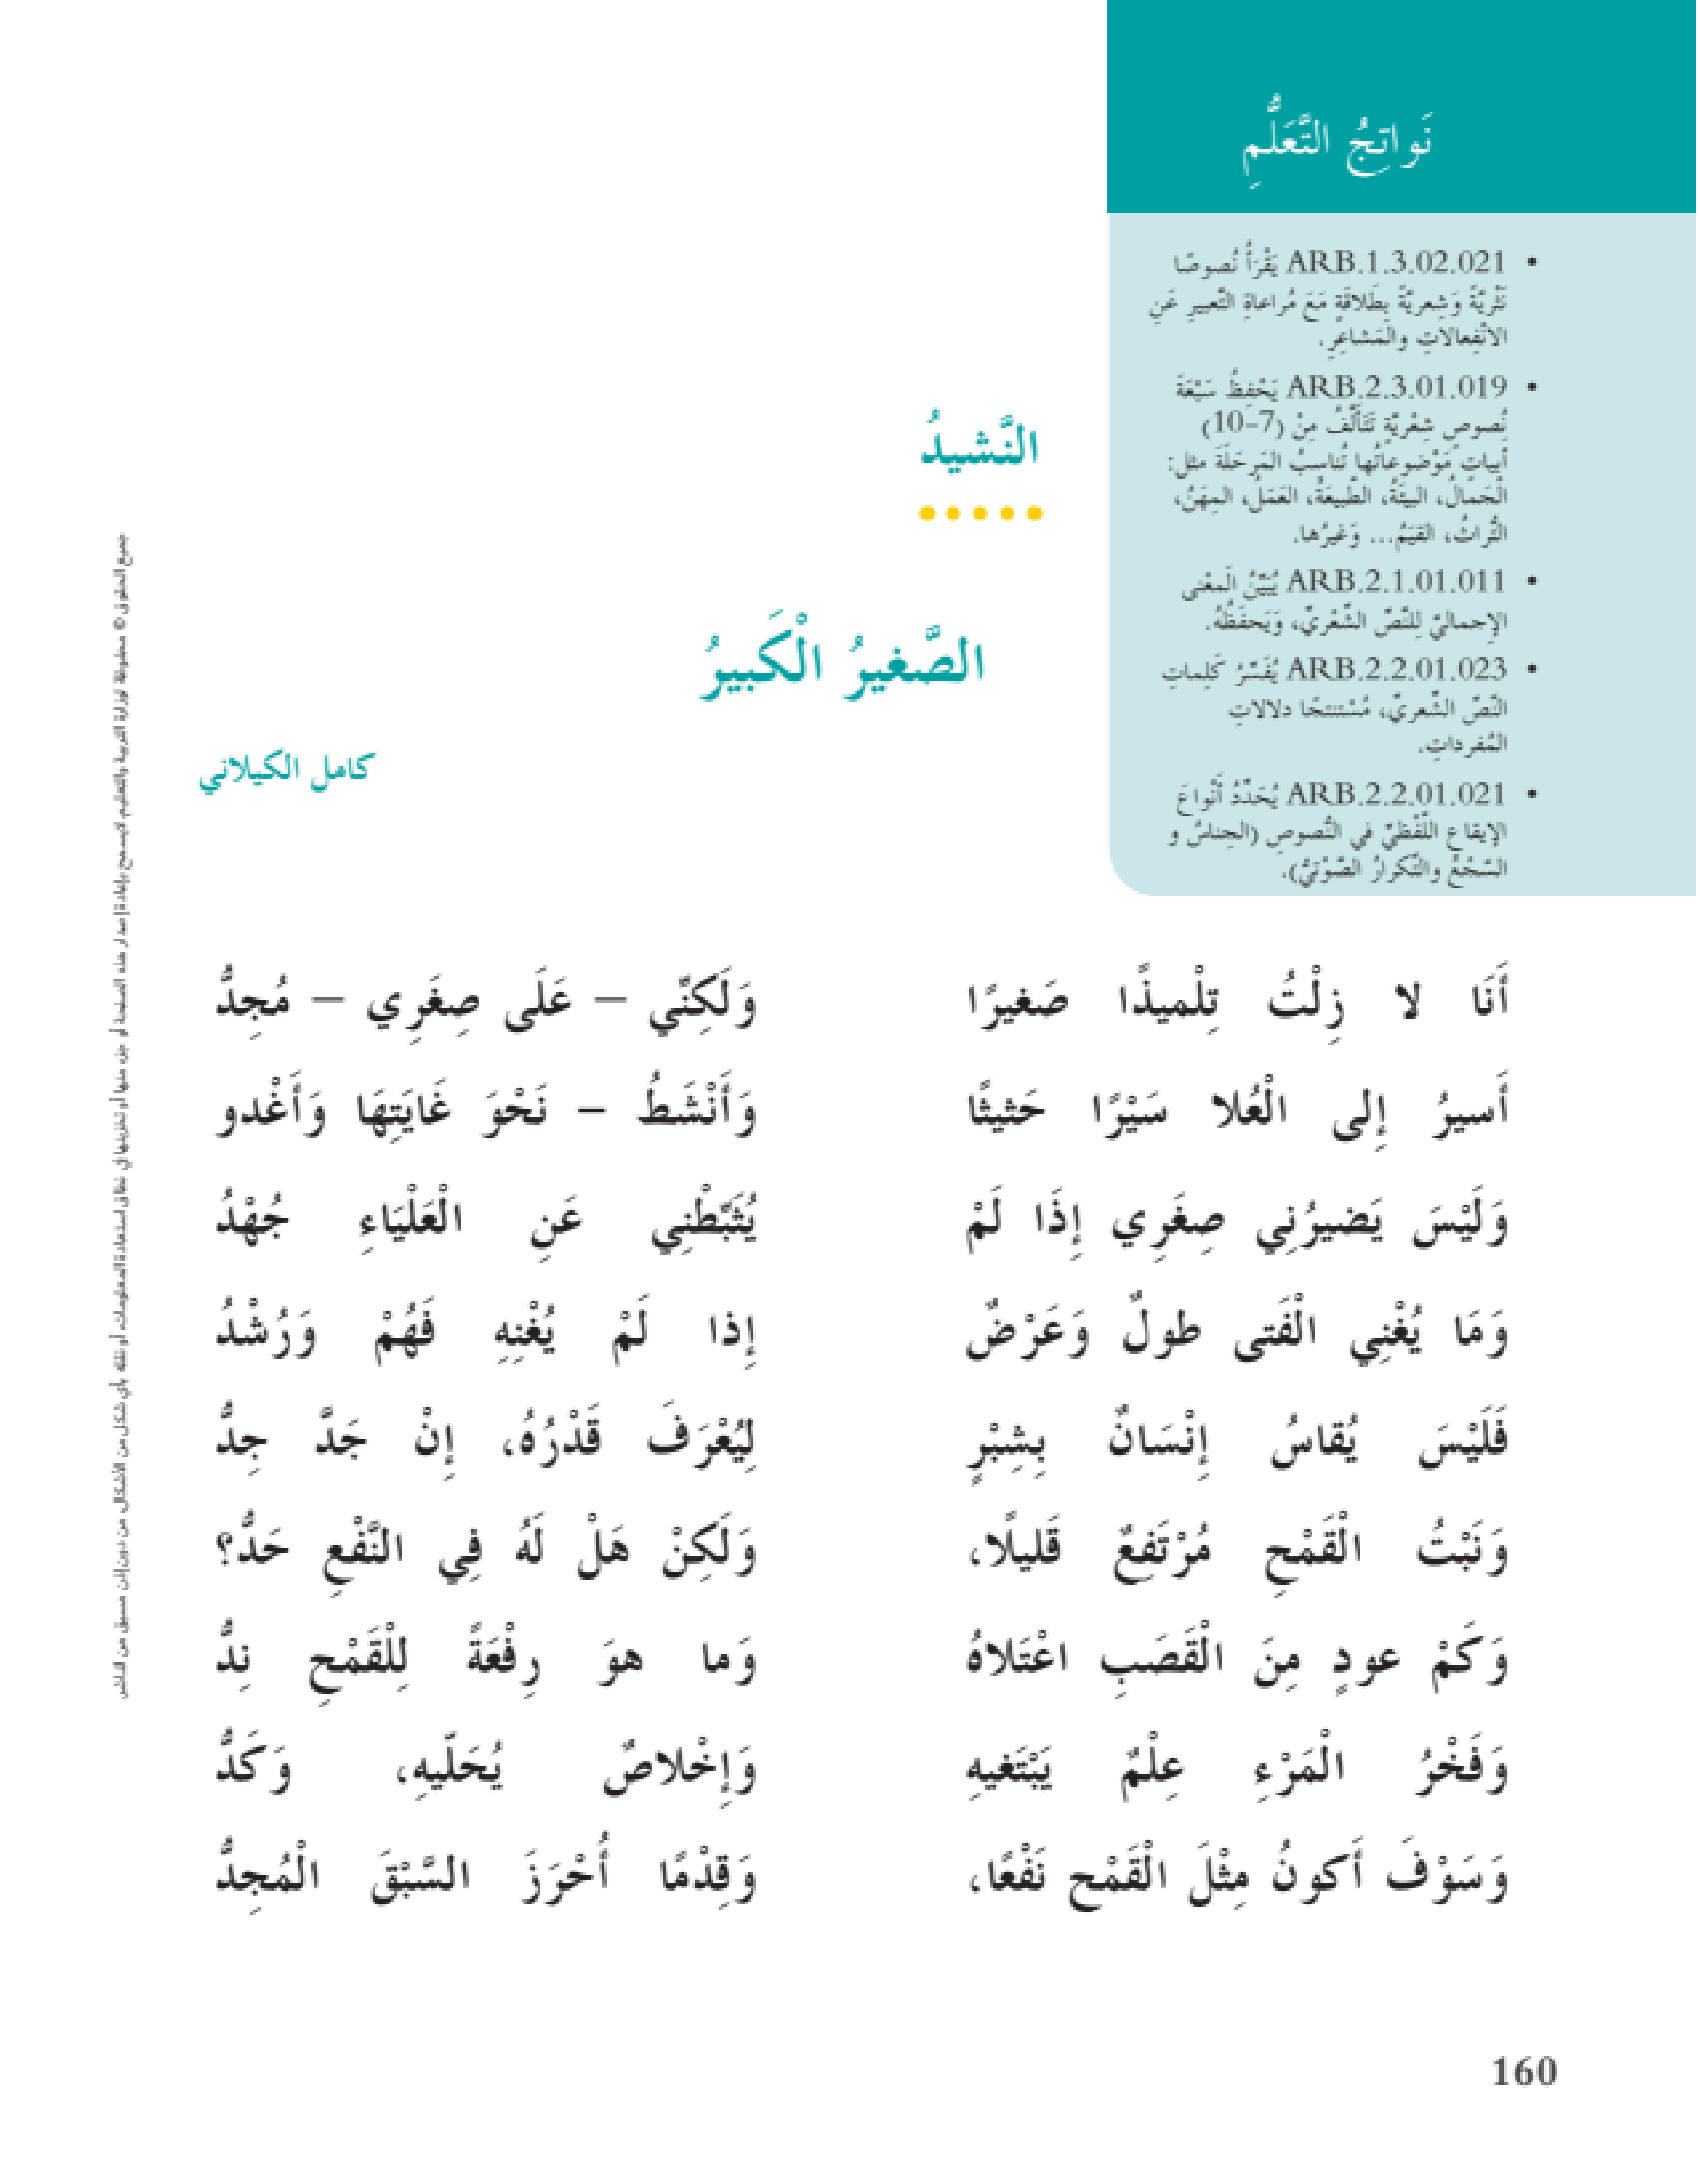 نَواتِجُ التَّعَلُّمِ
• ARB.1.3.02.021 يَقْرَأُ نُصوصًا
نَثْرِيَّةً وَشِعريَّةً بِطَلاقَةٍ مَعَ مُراعاةِ التَّعبيرِ عَنِ
الانْفِعالاتِ والْمَشاعِرِ.
• ARB.2.3.01.019 يَحْفِظُ سَبْعَةَ
نُصوصٍ شِعْرِيَّةٍ تَتَأَلَّفُ مِنْ (7-10)
أَبياتٍ مَوْضوعاتُها تُناسبُ المَرحَلَةَ مثل:
الْجَمالُ، البيئَةُ، الطَّبيعَةُ، العَمَلُ، المِهَنُ،
التُّراثُ، القيَمُ... وَغيرُها.
• ARB.2.1.01.011 يُبَيِّنُ الْمعْنى
الإجماليَّ لِلنَّصِّ الشِّعْريِّ، وَيَحفَظُهُ.
• ARB.2.2.01.023 يُفَسِّرُ كَلِماتِ
النَّصِّ الشِّعريِّ، مُسْتنتجًا دلالاتِ
المُفرداتِ.
• ARB.2.2.01.021 يُحَدِّدُ أَنْواعَ
الإيقاعِ اللَّفْظيِّ في النُّصوصِ (الجِناسُ و
السَّجْعُ والتَّكرارُ الصَّوْتيُّ).
النَّشيدُ
الصَّغيرُ الْكَبيرُ
كامل الكيلاني
أَنَا لا زِلْتُ تِلْميذًا صَغيرًا وَلَكِنَّي – عَلَى صِغَرِي – مُجِدُّ
أَسيرُ إِلى الْعُلا سَيْرًا حَثيثًا وَأَنْشَطُ – نَحْوَ غَايَتِهَا وَأَغْدو
وَلَيْسَ يَضيرُنِي صِغَرِي إِذَا لَمْ يُثَبِّطْنِي عَنِ الْعَلْيَاءِ جُهْدُ
وَمَا يُغْنِي الْفَتى طولٌ وَعَرْضٌ إِذا لَمْ يُغْنِهِ فَهْمٌ وَرُشْدُ
فَلَيْسَ يُقاسُ إِنْسَانٌ بِشِبْرٍ لِيُعْرَفَ قَدْرُهُ، إِنْ جَدَّ جِدُّ
وَنَبْتُ الْقَمْحِ مُرْتَفِعٌ قَليلًا، وَلَكِنْ هَلْ لَهُ فِي النَّفْعِ حَدُّ؟
وَكَمْ عودٍ مِنَ الْقَصَبِ اعْتَلاهُ وَما هوَ رِفْعَةً لِلْقَمْحِ نِدُّ
وَفَخْرُ الْمَرْءِ عِلْمٌ يَبْتَغيهِ وَإِخْلاصٌ يُحَلّيهِ، وَكَدُّ
وَسَوْفَ أَكونُ مِثْلَ الْقَمْح نَفْعًا، وَقِدْمًا أُحْرَزَ السَّبْقَ الْمُجِدُّ
جميع الحقوق © محفوظة لوزارة التربية والتعليم. لايسمح بإعادة إصدار هذه الصفحة أو جزء منها أو تخزينها في نطاق استعادة المعلومات، أو نقله بأي شكل من الأشكال من دون إذن مسبق من الناشر
160